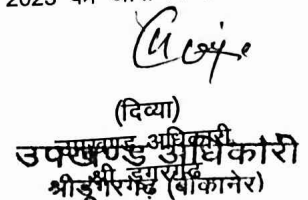 2023 की
(दिव्या)
उपखण्ड अधिकारी,
उपखण्ड अधिकारी
श्री डूंगरगढ़
श्रीडूंगरगढ़ (बीकानेर)